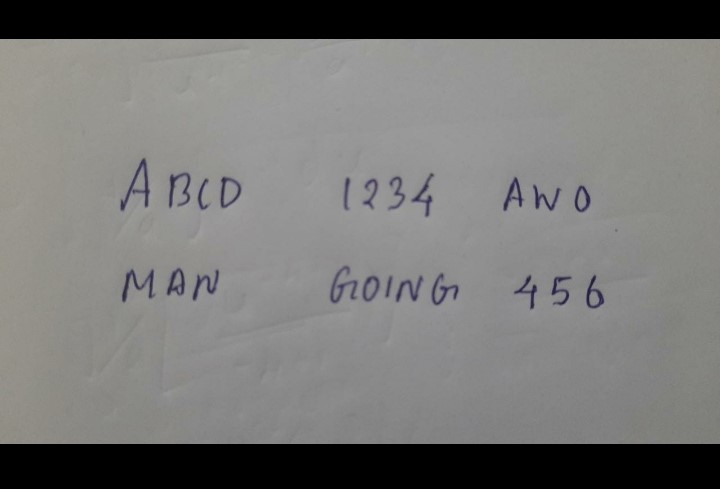 ABCD 1234 AWO
MAN GOING 456